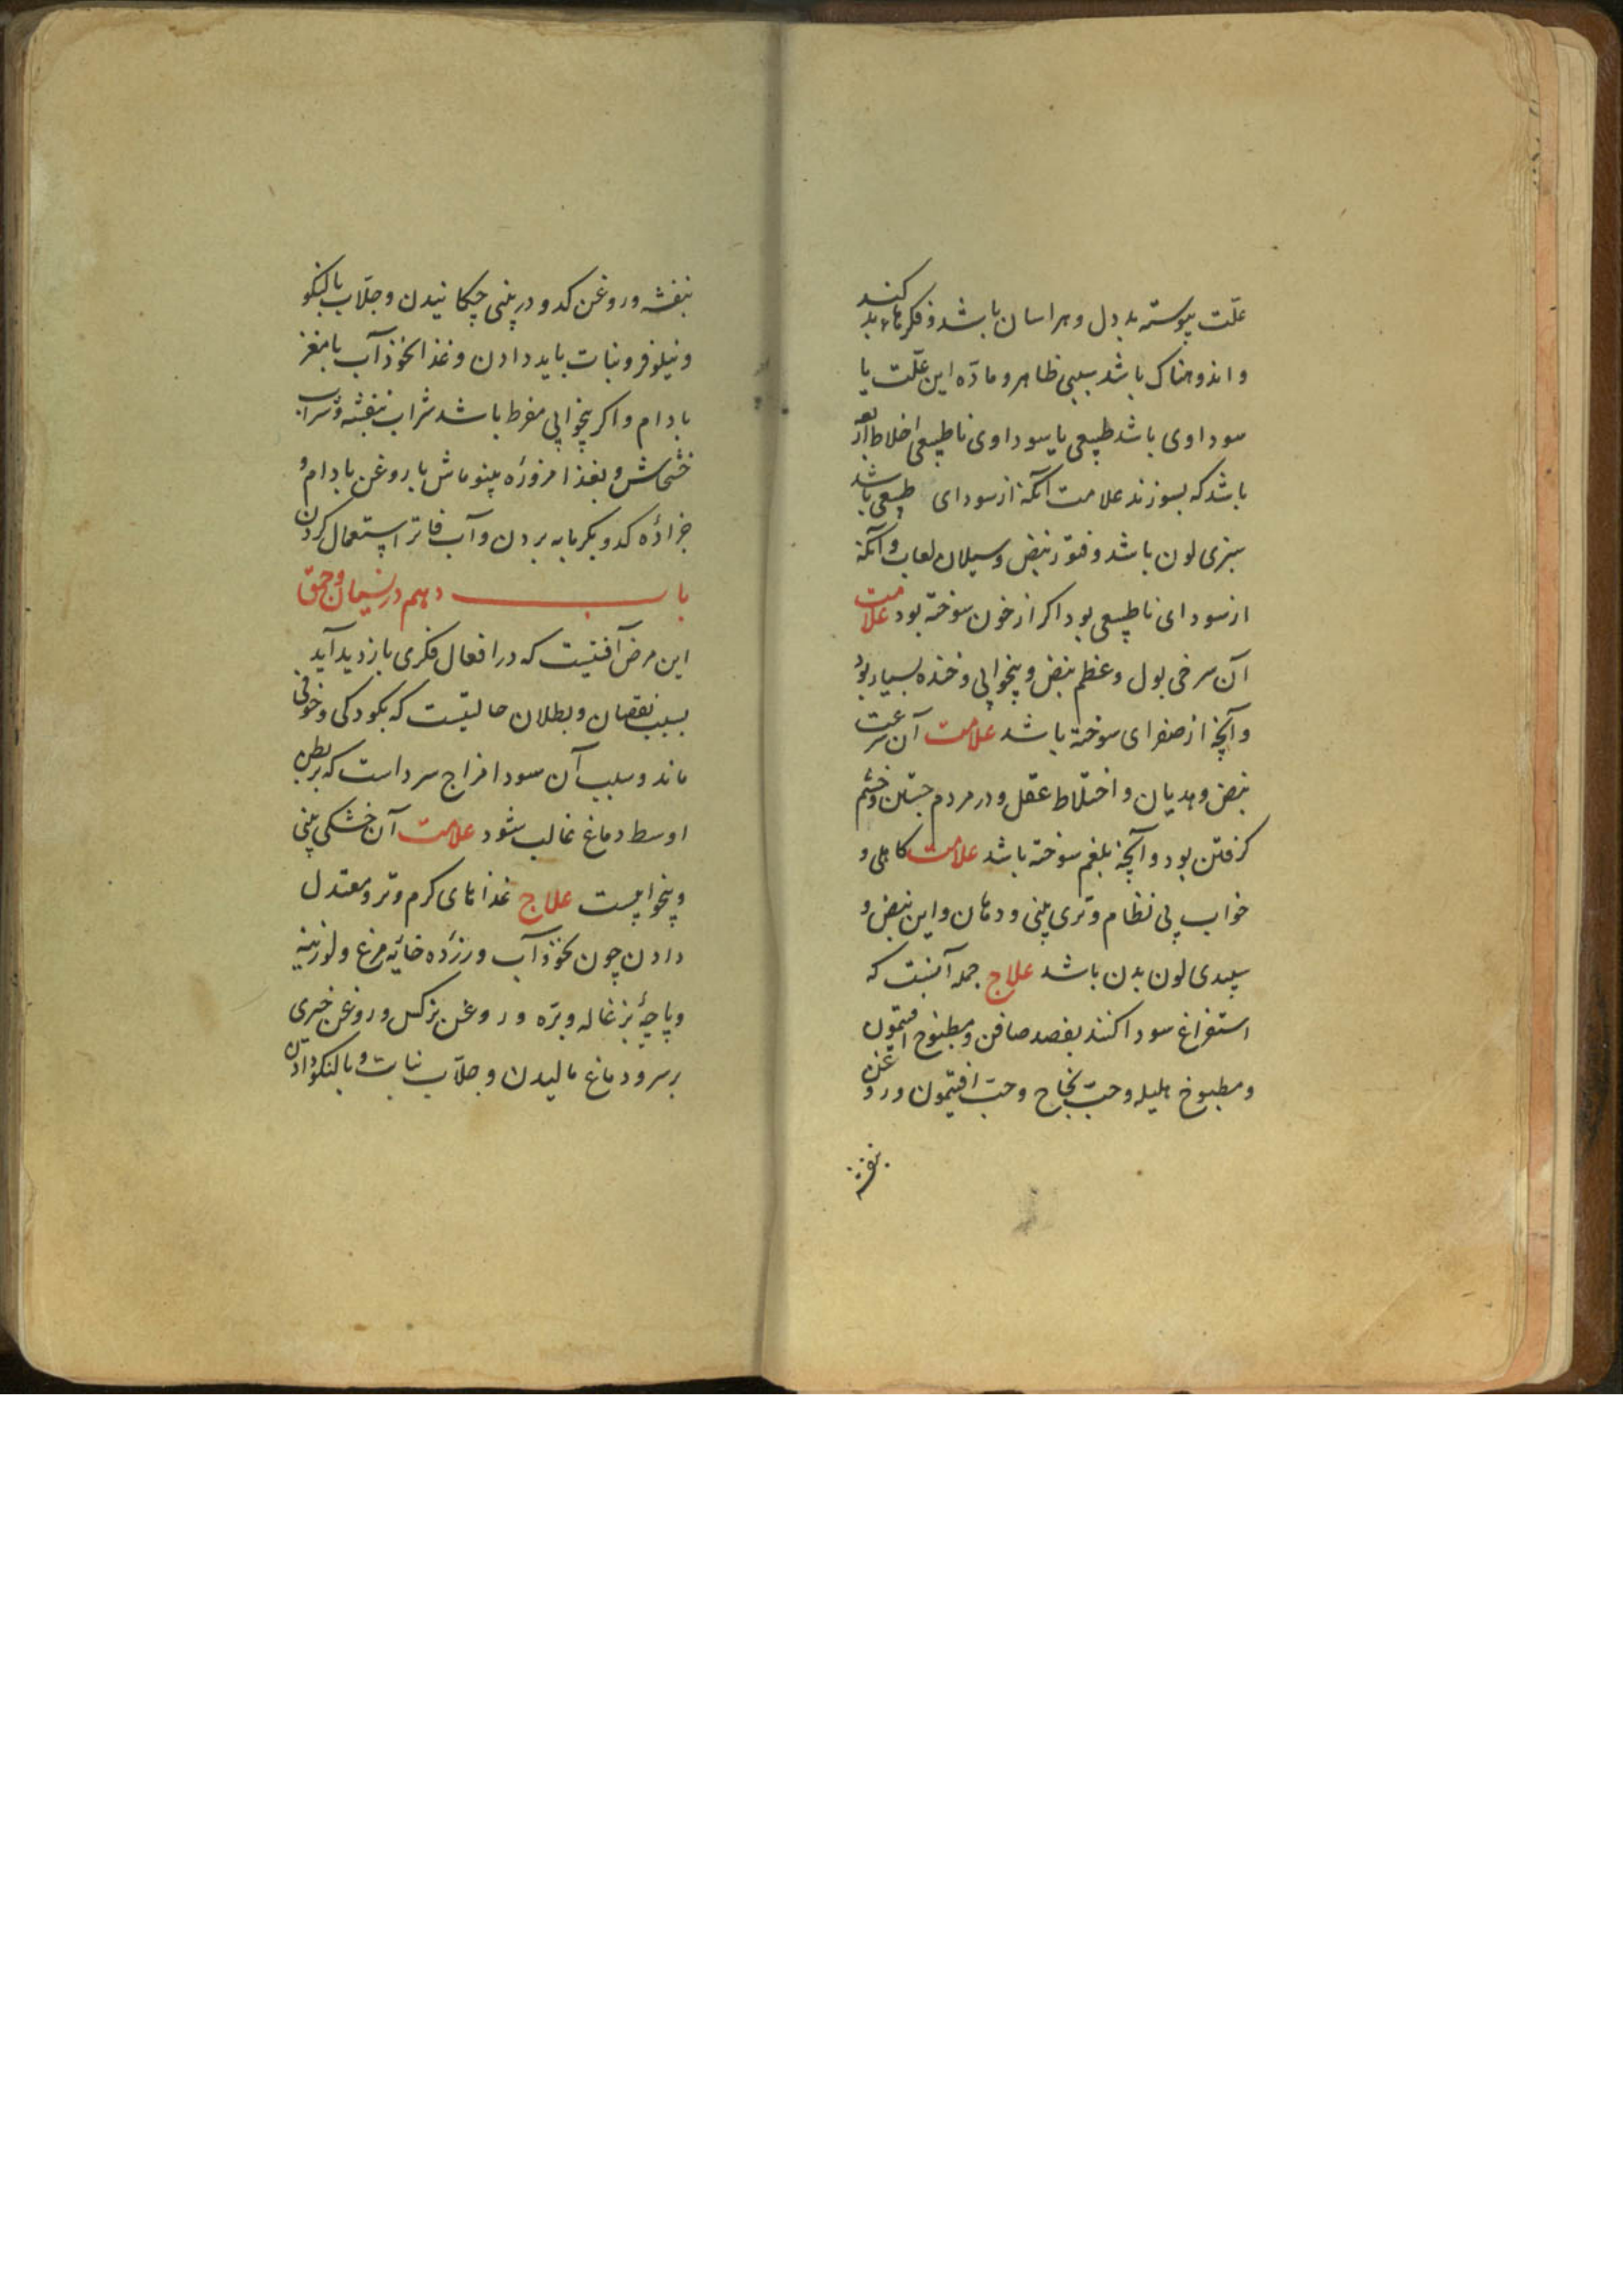 علّت پیوسته بد دل و هراسان باشد و فکرهاء بد کند
و اندوهناک باشد بی‌سببی ظاهر و مادّه این علّت یا
سوداوی باشد طبیعی یا سوداوی ناطبیعی اخلاط از
باشد که بسوزند علامت آنکه از سودای طبیعی باشد
سبزی لون باشد و فتور نبض و سیلان لعاب و آنکه
از سودای ناطبیعی بود اکر از خون سوخته بود علامت
آن سرخی بول و عظم نبض و بیخوابی و خنده بسیار بود
و آنچه از صفرای سوخته باشد علامت آن سرعت
نبض و هدیان و اختلاط عقل و در مردم جستن و خشم
کرفتن بود و آنچه بلغم سوخته باشد علامت کاهلی و
خواب بی نظام و تری بینی و دهان و لین نبض و
سپیدی لون بدن باشد علاج جمله آنست که
استفراغ سودا کنند بفصد صافن و مطبوخ افتیمون
و مطبوخ هلیله و حبّ نجاح و حبّ افتیمون و روغن
بنفشه
بنفشه و روغن کدو در بینی چکانیدن و جلّاب بالنکو
و نیلوفر و نبات باید دادن و غذا نخودآب با مغز
بادام و اکر بیخوابی مفرط باشد شراب بنفشه و شراب
خشخاش و بغذا مزوره بنوماش با روغن بادام و
خراده کدو بکرمابه بردن و آب فاتر استعمال کردن
باب دهم در نسیان و حمق
این مرض آفتیست که در افعال فکری بازدید آید
بسبب نقصان و بطلان حالتیست که بکودکی و خرفی
ماند و سبب آن سوء مزاج سرد است که بر بطن
اوسط دماغ غالب شود علامت آن خشکی بینی
و بیخوابیست علاج غذاهای کرم و تر و معتدل
دادن چون نخودآب و زرده خایه مرغ و لوزینه
و پاچهٔ بزغاله و بره و روغن نرکس و روغن خیری
بر سر و دماغ مالیدن و جلّاب نبات و بالنکو دادن